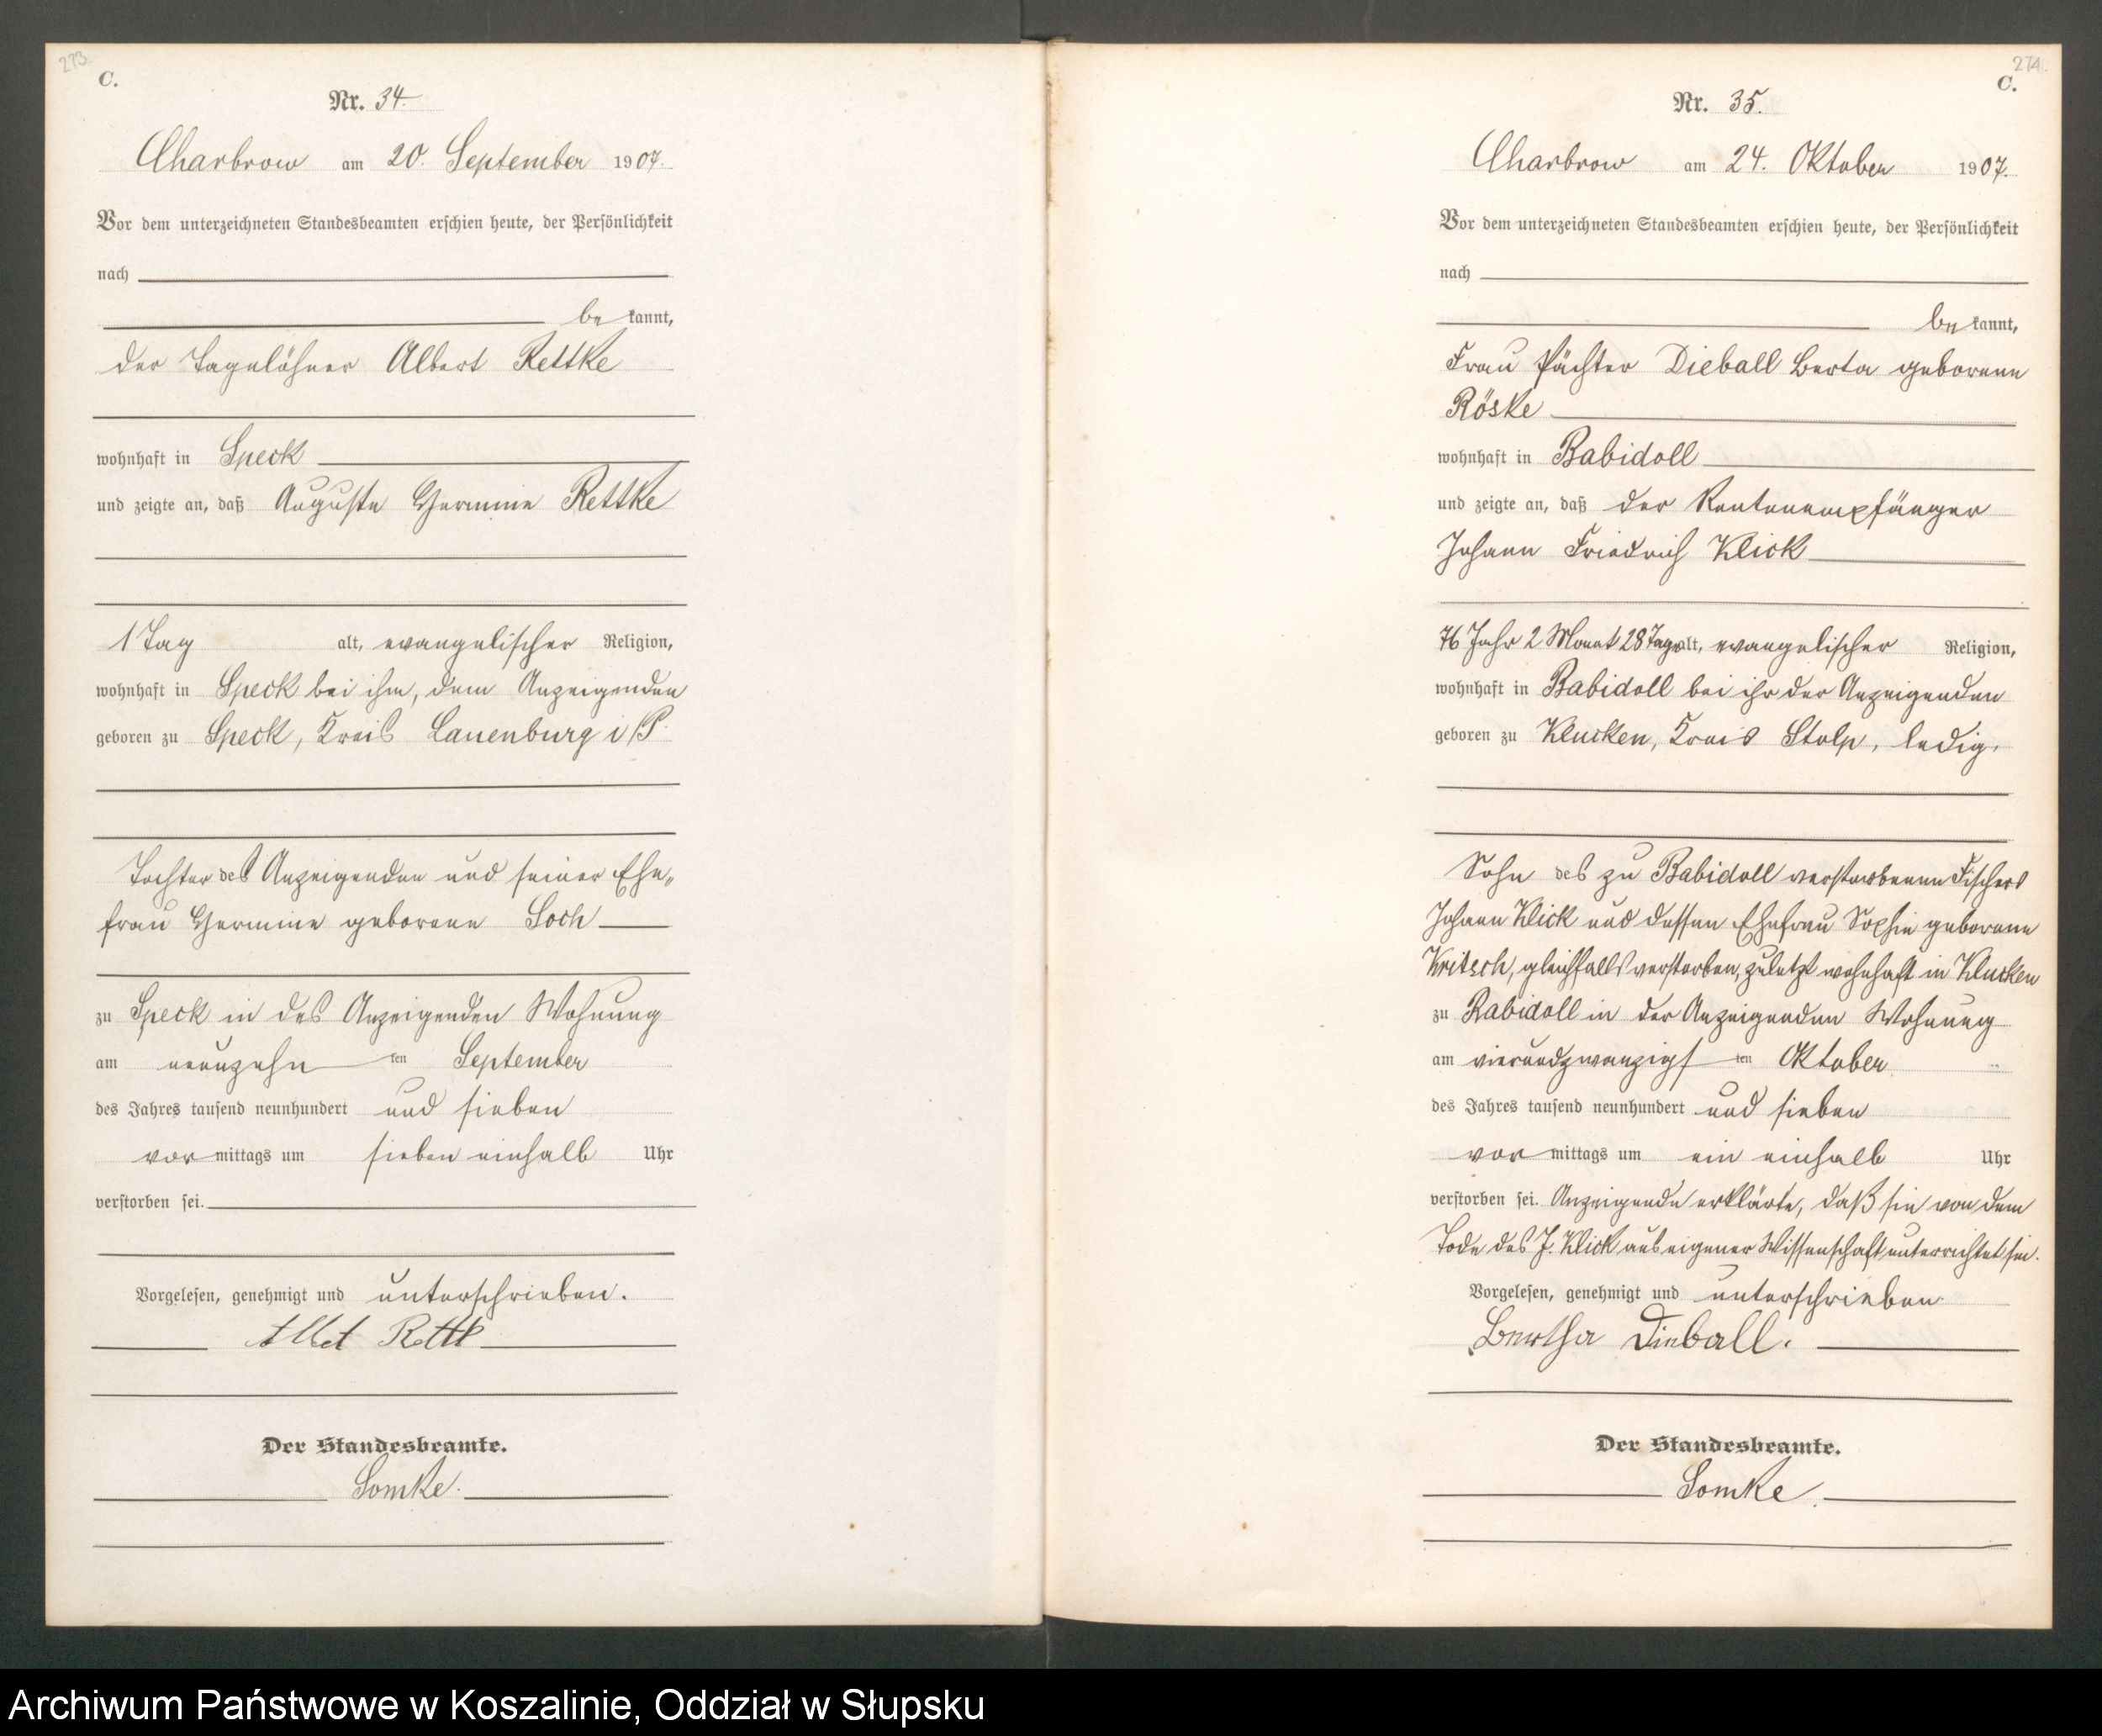 273.
C.
Nr. 34.
Charbrow am 20. September 1907.
Vor dem unterzeichneten Standesbeamten erschien heute, der Persönlichkeit
nach
be kannt,
der Tagelöhner Albert Rettke
wohnhaft in Speck
und zeigte an, daß Auguste Hermine Rettke
1 Tag alt, evangelischer Religion,
wohnhaft in Speck bei ihm, dem Anzeigenden
geboren zu Speck, Kreis Lauenburg i/P.
Tochter des Anzeigenden und seiner Ehe„
frau Hermine geborene Soch
zu Speck in des Anzeigenden Wohnung
am neunzehn ten September
des Jahres tausend neunhundert und sieben
vor mittags um sieben einhalb Uhr
verstorben sei.
Vorgelesen, genehmigt und unterschrieben.
Der Standesbeamte.
Somke.
274.
C.
Nr. 35.
Charbrow am 24. Oktober 1907.
Vor dem unterzeichneten Standesbeamten erschien heute, der Persönlichkeit
nach
be kannt,
Frau Pächter Dieball Berta geborene
Röske
wohnhaft in Babidoll
und zeigte an, daß der Rentenempfänger
Johann Friedrich Klick
76 Jahr 2 Monat 28 Tage alt, evangelischer Religion,
wohnhaft in Babidoll bei ihr der Anzeigenden
geboren zu Klucken, Kreis Stolp, ledig.
Sohn des zu Babidoll verstorbenen Fischers
Johann Klick und dessen Ehefrau Sophie geborene
Kritsch, gleichfalls verstorben, zuletzt wohnhaft in Klucken
zu Babidoll in der Anzeigenden Wohnung
am vierundzwanzigs ten Oktober
des Jahres tausend neunhundert und sieben
vor mittags um ein einhalb Uhr
verstorben sei. Anzeigende erklärte, daß sie von dem
Tode des J. Klick aus eigener Wissenschaft unterrichtet sei.
Vorgelesen, genehmigt und unterschrieben
Bertha Dieball.
Der Standesbeamte.
Somke.
Archiwum Państwowe w Koszalinie, Oddział w Słupsku